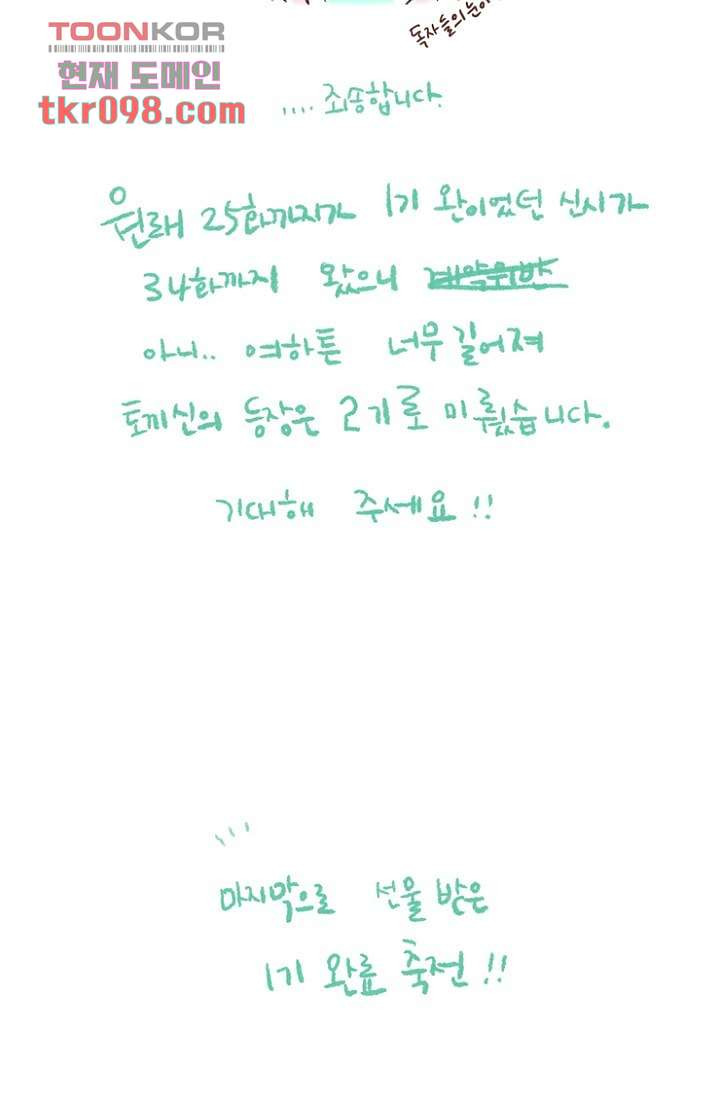 TOONKOR
현재 도메인
tkr098.com
독자들의 눈이
.... 죄송합니다.
원래 25화까지가 1기 완이었던 신시가
34화까지 왔으니 계약위반
아니.. 여하튼 너무 길어져
토끼신의 등장은 2기로 미뤘습니다.
기대해 주세요!!
마지막으로 선물 받은
1기 완료 축전!!